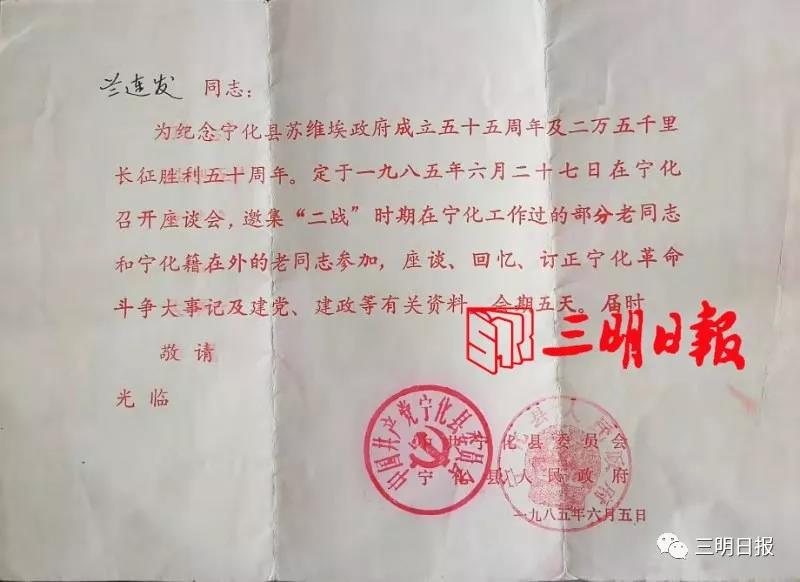 兰连发 同志：
为纪念宁化县苏维埃政府成立五十五周年及二万五千里
长征胜利五十周年。定于一九八五年六月二十七日在宁化
召开座谈会，邀集“二战”时期在宁化工作过的部分老同志
和宁化籍在外的老同志参加，座谈、回忆、订正宁化革命
斗争大事记及建党、建政等有关资料，会期五天。届时
三明日报
敬请
光临
中国共产党宁化县委员会
宁化县人民政府
中共宁化县委员会
宁化县人民政府
一九八五年六月五日
三明日报